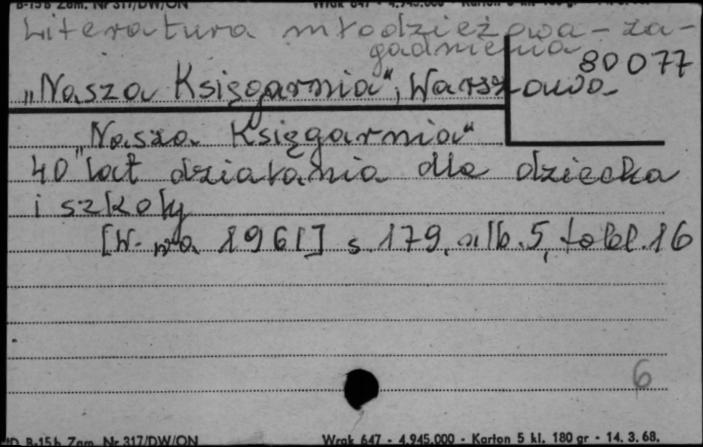 B-15b Zam. Nr 317/DW/ON Wrak 647 - 4.945.000 - Karton 5 kl. 180 gr - 14. 3. 68.
Literatura młodzieżowa - za-
gadnienia
80077
„Nasza Księgarnia", Warszawa
„Nasza Księgarnia"
40 lat działania dla dziecka
i szkoły
[W-wa 1961] s. 179, nlb. 5, tabl. 16
6
B-15b Zam. Nr 317/DW/ON Wrak 647 - 4.945.000 - Karton 5 kl. 180 gr - 14. 3. 68.